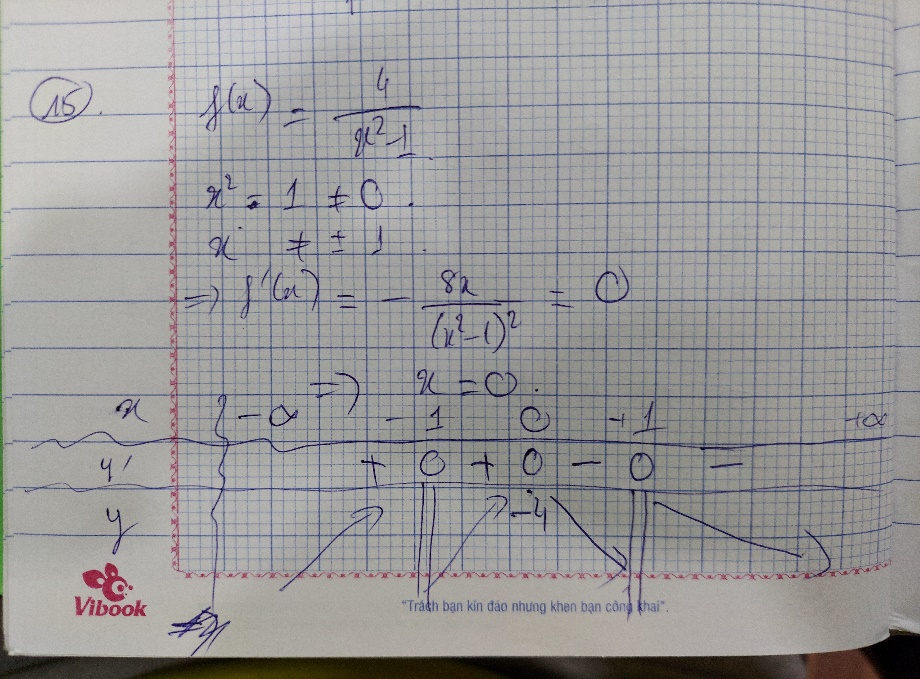 15.
f(x) = 4/(x²-1)
x² = 1 ≠ 0.
x ≠ ± 1.
=> f'(x) = - 8x/(x²-1)² = 0
=> x = 0.
x -∞ -1 0 +1 +∞
y' + 0 + 0 - 0 -
y -4
Vibook
"Trách bạn kín đáo nhưng khen bạn công khai".